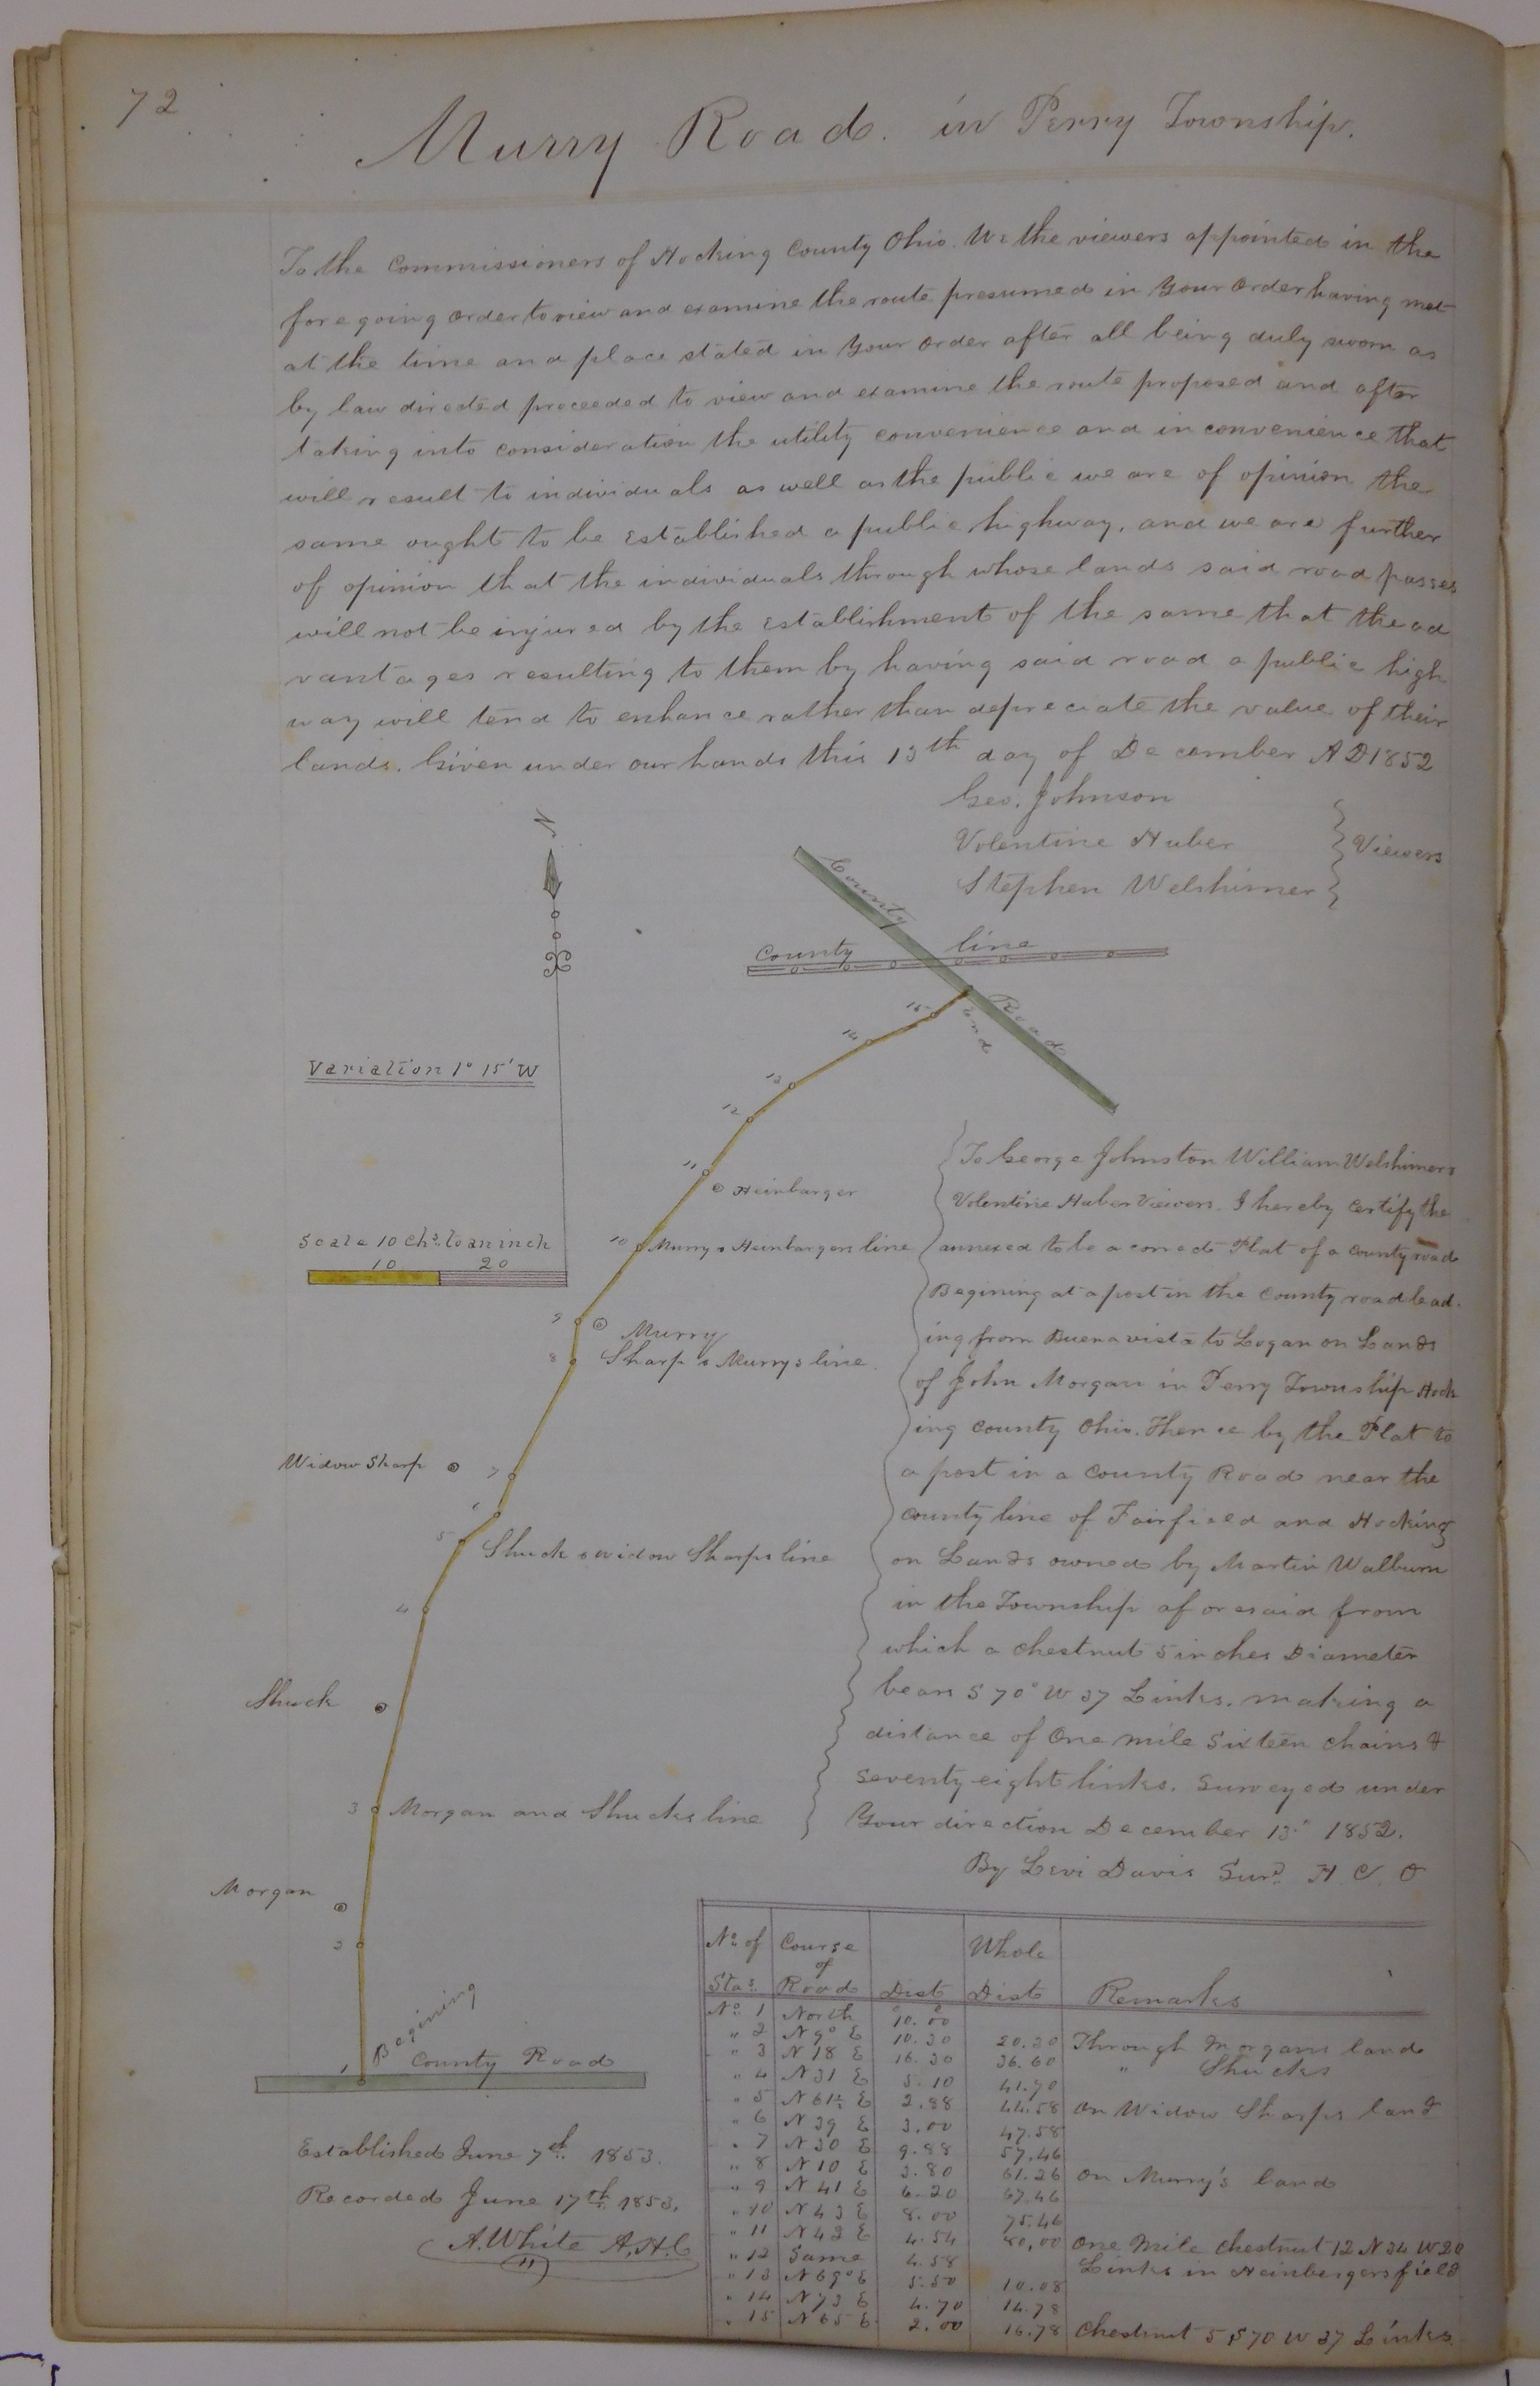 72
Murry Road. in Perry Township.
To the Commissioners of Hocking County Ohio. We the viewers appointed in the
foregoing order to view and examine the route presumed in Your order having met
at the time and place stated in Your order after all being duly sworn as
by law directed proceeded to view and examine the route proposed and after
taking into consideration the utility convenience and inconvenience that
will result to individuals as well as the public we are of opinion the
same ought to be Established a public highway, and we are further
of opinion that the individuals through whose lands said road passes
will not be injured by the Establishment of the same that the ad
vantages resulting to them by having said road a public high
way will tend to enhance rather than depreciate the value of their
lands. Given under our hands this 13th day of December A D 1852
Geo. Johnson
Volentine Huber
Stephen Welshimer
Viewers
N
County Road
County line
End
Variation 1° 15' W
Scale 10 Chs. to an inch
10 20
15
14
13
12
11
Heinbarger
10 Murry & Heinbargers line
9
Murry
8 Sharp & Murrys line.
Widow Sharp
7
6
5 Shuck & widow Sharps line
4
Shuck
3 Morgan and Shucks line
Morgan
2
1
Begining
County Road
To George Johnston William Welshimer &
Volentine Huber Viewers. I hereby certify the
annexed to be a correct Plat of a County road
Begining at a post in the County road lead-
ing from Buenavista to Logan on Lands
of John Morgan in Perry Township Hock
ing County Ohio. Thence by the Plat to
a post in a County Road near the
County line of Fairfield and Hocking
on Lands owned by Martin Walburn
in the Township aforesaid from
which a chestnut 5 inches Diameter
bears S 70° W 37 Links. making a
distance of One mile Sixteen chains &
Seventy eight links. Surveyed under
Your direction December 13th 1852.
By Levi Davis Surd. H. C. O
No. of Stas. Course of Road Dist Whole Dist Remarks
No. 1 North 10.00
" 2 N 9° E 10.30 20.30 Through Morgans land
" 3 N 18 E 16.30 36.60 " Shucks
" 4 N 31 E 5.10 41.70
" 5 N 61½ E 2.88 44.58 on Widow Sharps land
" 6 N 39 E 3.00 47.58
" 7 N 30 E 9.88 57.46
" 8 N 10 E 3.80 61.26 on Murry's land
" 9 N 41 E 6.20 67.46
" 10 N 43 E 8.00 75.46
" 11 N 42 E 4.54 80,00 One Mile Chestnut 12 N 34 W 20
" 12 Same 4.58 Links in Heinbergers field
" 13 N 69° E 5.50 10.08
" 14 N 73 E 4.70 14.78
" 15 N 65 E 2.00 16.78 Chestnut 5 S 70 W 37 Links
Established June 7th 1853.
Recorded June 17th 1853.
A. White A.H.C